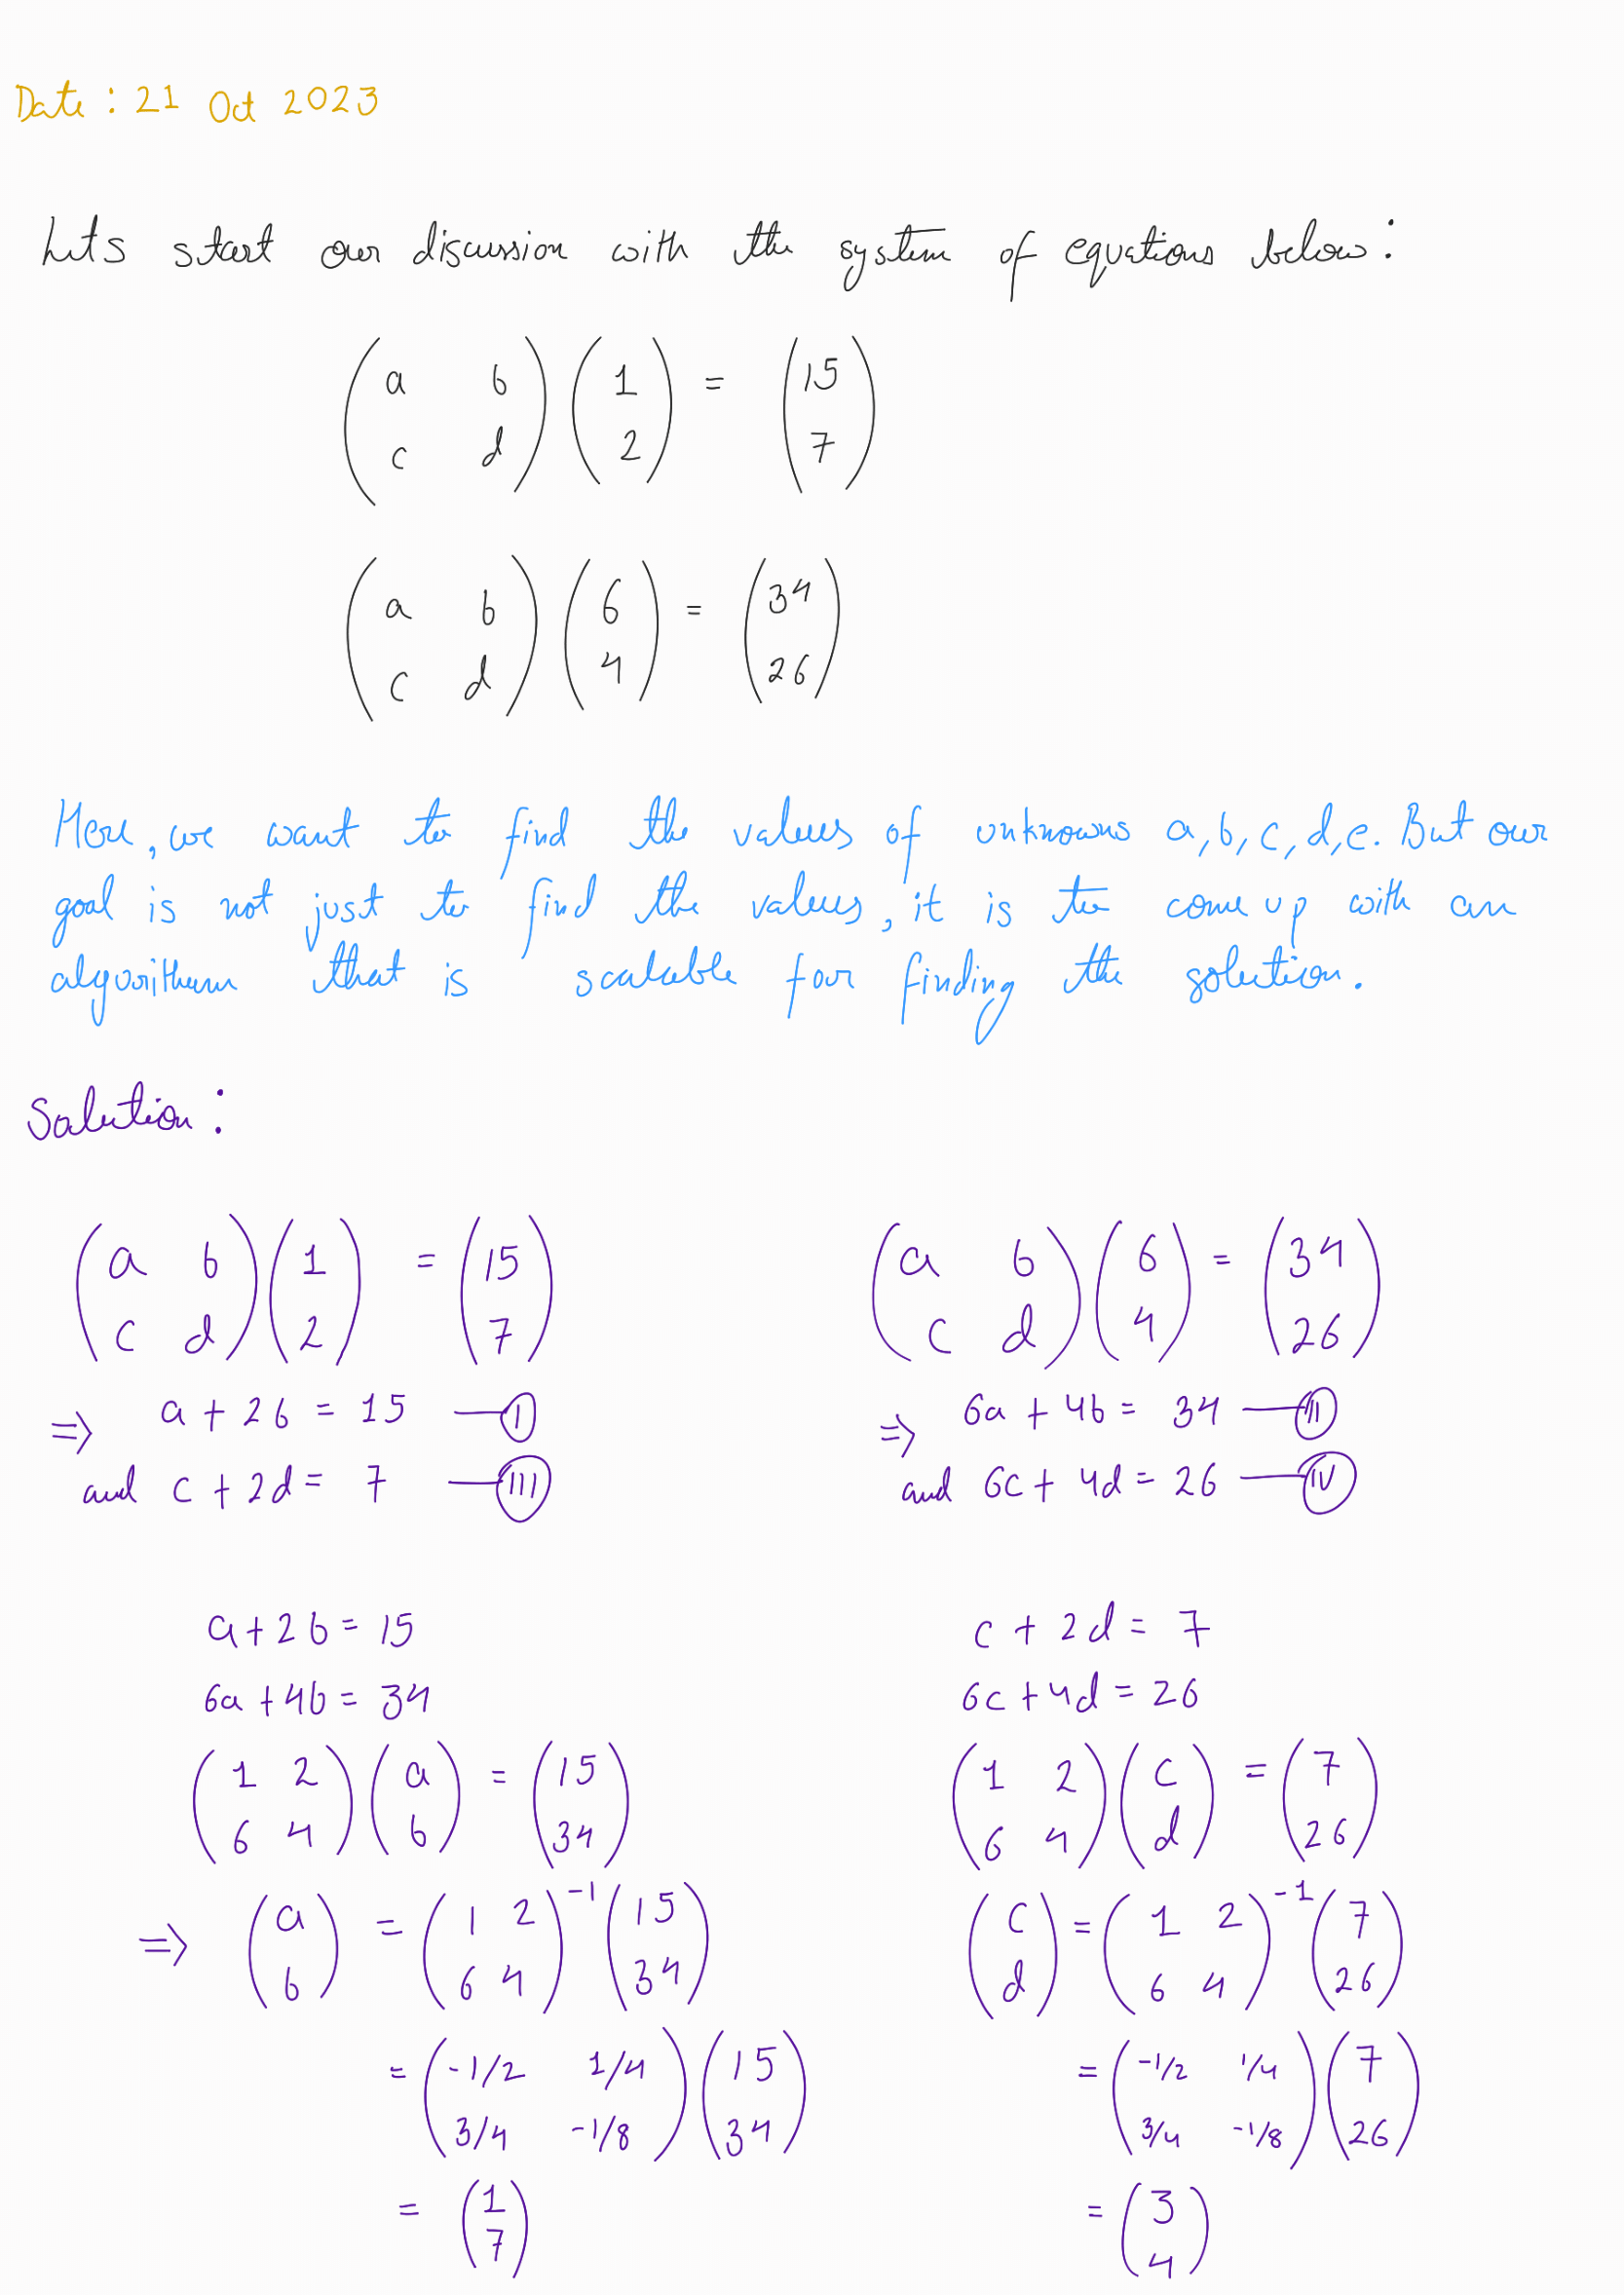 Date : 21 Oct 2023
Lets start our discussion with the system of equations below :
( a b ) ( 1 ) = ( 15 )
( c d ) ( 2 )   ( 7 )
( a b ) ( 6 ) = ( 34 )
( c d ) ( 4 )   ( 26 )
Here, we want to find the values of unknowns a, b, c, d, e. But our
goal is not just to find the values, it is to come up with an
algorithm that is scalable for finding the solution.
Solution :
( a b ) ( 1 ) = ( 15 )
( c d ) ( 2 )   ( 7 )
⇒ a + 2b = 15 — I
and c + 2d = 7 — III
( a b ) ( 6 ) = ( 34 )
( c d ) ( 4 )   ( 26 )
⇒ 6a + 4b = 34 — II
and 6c + 4d = 26 — IV
a + 2b = 15
6a + 4b = 34
( 1 2 ) ( a ) = ( 15 )
( 6 4 ) ( b )   ( 34 )
⇒ ( a ) = ( 1 2 )⁻¹ ( 15 )
( b )   ( 6 4 )   ( 34 )
= ( -1/2 1/4 ) ( 15 )
( 3/4 -1/8 ) ( 34 )
= ( 1 )
( 7 )
c + 2d = 7
6c + 4d = 26
( 1 2 ) ( c ) = ( 7 )
( 6 4 ) ( d )   ( 26 )
( c ) = ( 1 2 )⁻¹ ( 7 )
( d )   ( 6 4 )   ( 26 )
= ( -1/2 1/4 ) ( 7 )
( 3/4 -1/8 ) ( 26 )
= ( 3 )
( 4 )